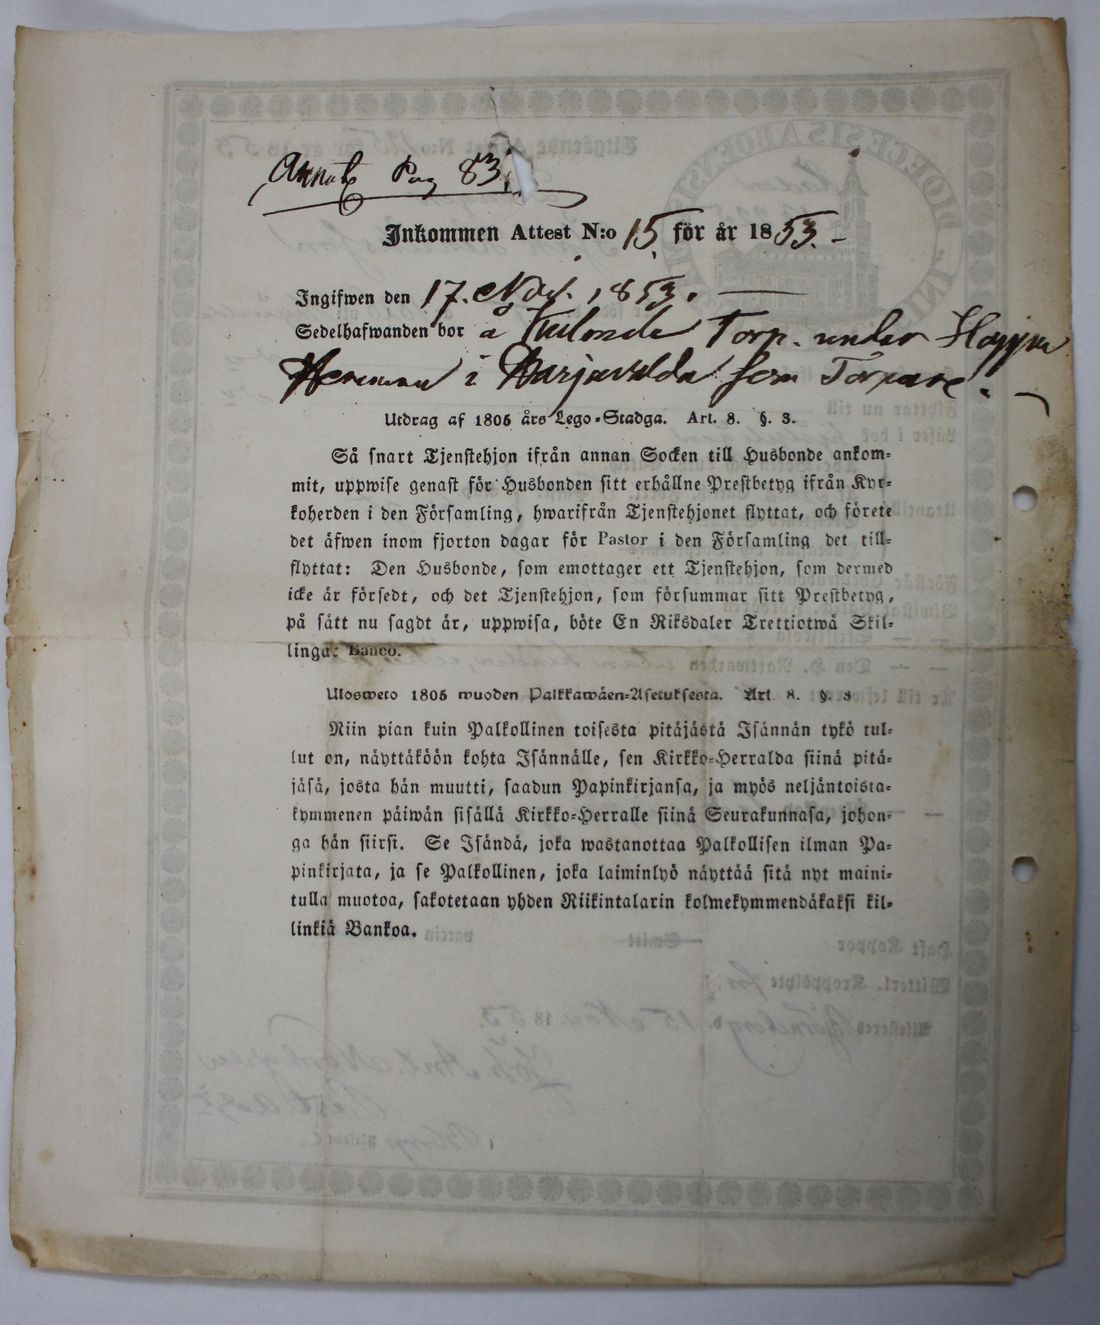 Annot. Pag 83.
Inkommen Attest N:o 15 för år 1853.
Ingifwen den 17. Nov. 1853.
Sedelhafwanden bor å Torp. under
i Harjavalda som Torpare.
Utdrag af 1805 års Lego-Stadga. Art. 8. §. 3.
Så snart Tjenstehjon ifrån annan Socken till Husbonde ankom-
mit, uppwise genast för Husbonden sitt erhållne Prestbetyg ifrån Kyr-
koherden i den Församling, hwarifrån Tjenstehjonet flyttat, och förete
det äfwen inom fjorton dagar för Pastor i den Församling det till-
flyttat: Den Husbonde, som emottager ett Tjenstehjon, som dermed
icke är försedt, och det Tjenstehjon, som försummar sitt Prestbetyg,
på sätt nu sagdt är, uppwisa, böte En Riksdaler Trettiotwå Skil-
linga: Banco.
Ulosweto 1805 wuoden Palkkawäen-Asetuksesta. Art. 8. §. 3
Niin pian kuin Palkollinen toisesta pitäjästä Isännän tykö tul-
lut on, näyttäköön kohta Isännälle, sen Kirkko-Herralda siinä pitä-
jäsä, josta hän muutti, saadun Papinkirjansa, ja myös neljäntoista-
kymmenen päiwän sisällä Kirkko-Herralle siinä Seurakunnasa, johon-
ga hän siirsi. Se Isändä, joka wastanottaa Palkollisen ilman Pa-
pinkirjata, ja se Palkollinen, joka laiminlyö näyttää sitä nyt maini-
tulla muotoa, sakotetaan yhden Riikintalarin kolmekymmendäkaksi kil-
linkiä Bankoa.